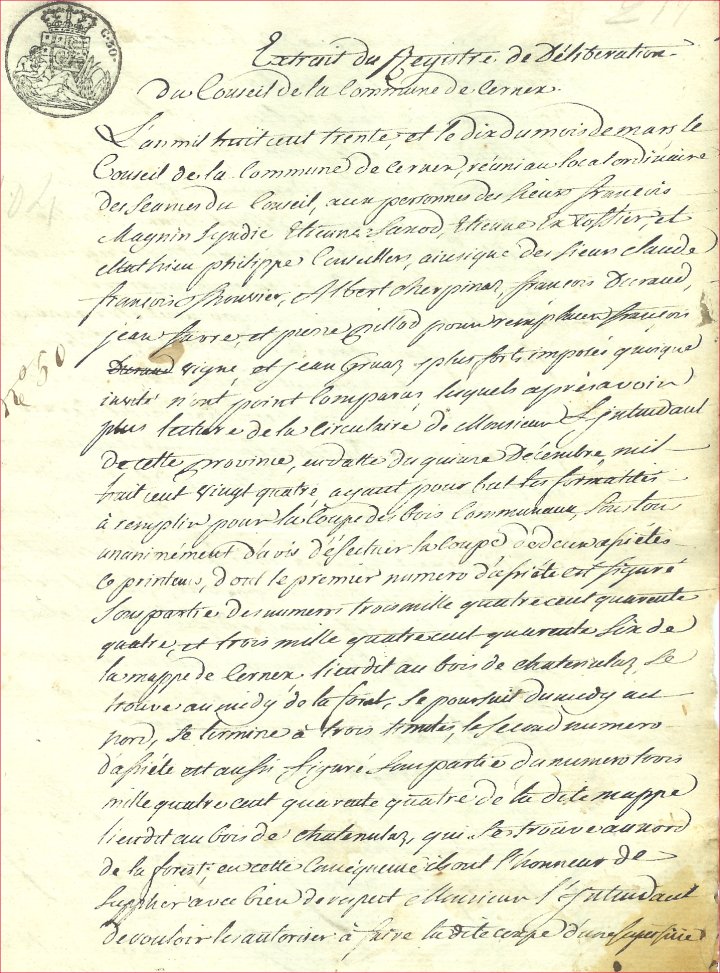 C. 50.
Extrait du Registre de Déliberation
Du Conseil de la Commune de Cernex.
L'an mil huit cent trente, et le dix du mois de mars le
Conseil de la Commune de Cernex, réuni au local ordinaire
des séances du Conseil, aux personnes des sieurs françois
Magnin Syndic Etienne Etienne et
Mathieu philippe Conseillers, ainsique des sieurs claude
françois Bouvier, Albert Cherpinaz, françois Durand,
jean favre, et pierre pillod pour remplacer françois
N.o 50
Durand vigne et jean Gruaz plus forts imposés quoique
invité n'ont point Comparus lesquels après avoir
plus lecture de la Circulaire de Monsieur L'jntendant
de cette province, en datte du quinze Décembre mil
huit cent vingt quatre ayant pour but les formalités
à remplir pour la Coupe des bois Communaux, sous tous
unaninement d'avis d'éfectuer la coupe de deux assiétés
ce printems, dont le premier numero d'assiéte est figuré
sous partie des numeros trois mille quatre cent quarente
quatre, et trois mille quatre cent quarente six de
la mappe de Cernex lieu dit au bois de chatenulaz, se
trouve au midy de la forat, se poursuit du midy au
nord, se termine à trois limites, le second numero
d'assiéte est aussi figuré sous partie du numero trois
mille quatre cent quarente quatre de la dite mappe
lieu dit au bois de chatenulaz, qui se trouve au nord
de la forest; en cette Conséquence ils ont l'honneur de
supplier avec bien de respect Monsieur l'Intendant
de vouloir les autoriser à faire la dite coupe d'une superficie